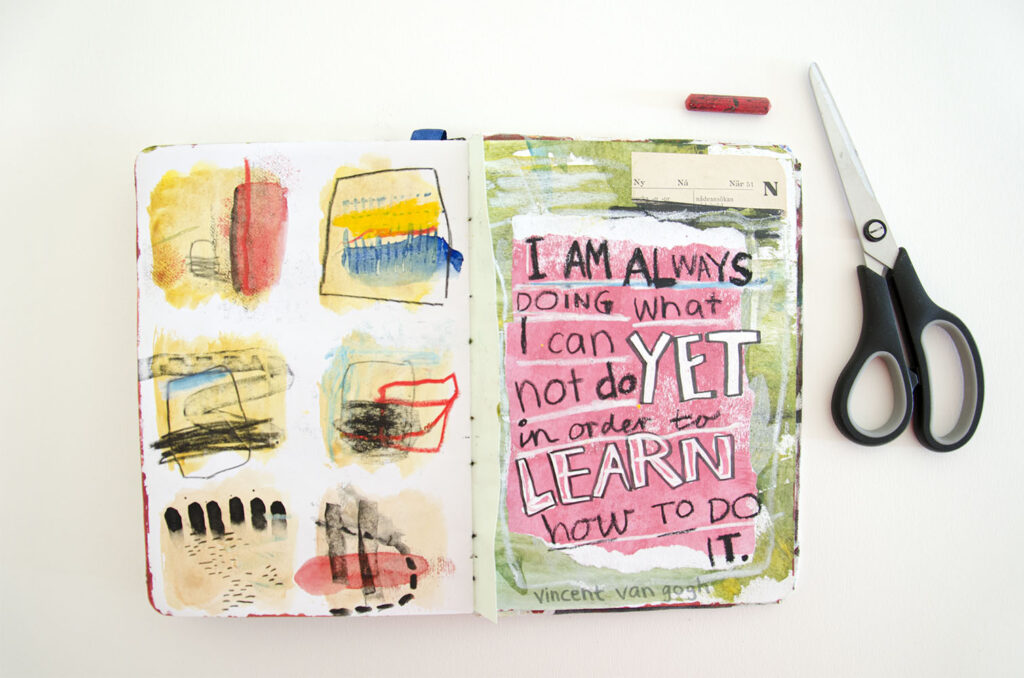 Ny Nå När 51 N
nådeansökan
I AM ALWAYS
DOING what
I can YET
not do
in order to
LEARN
how TO DO
IT.
vincent van gogh